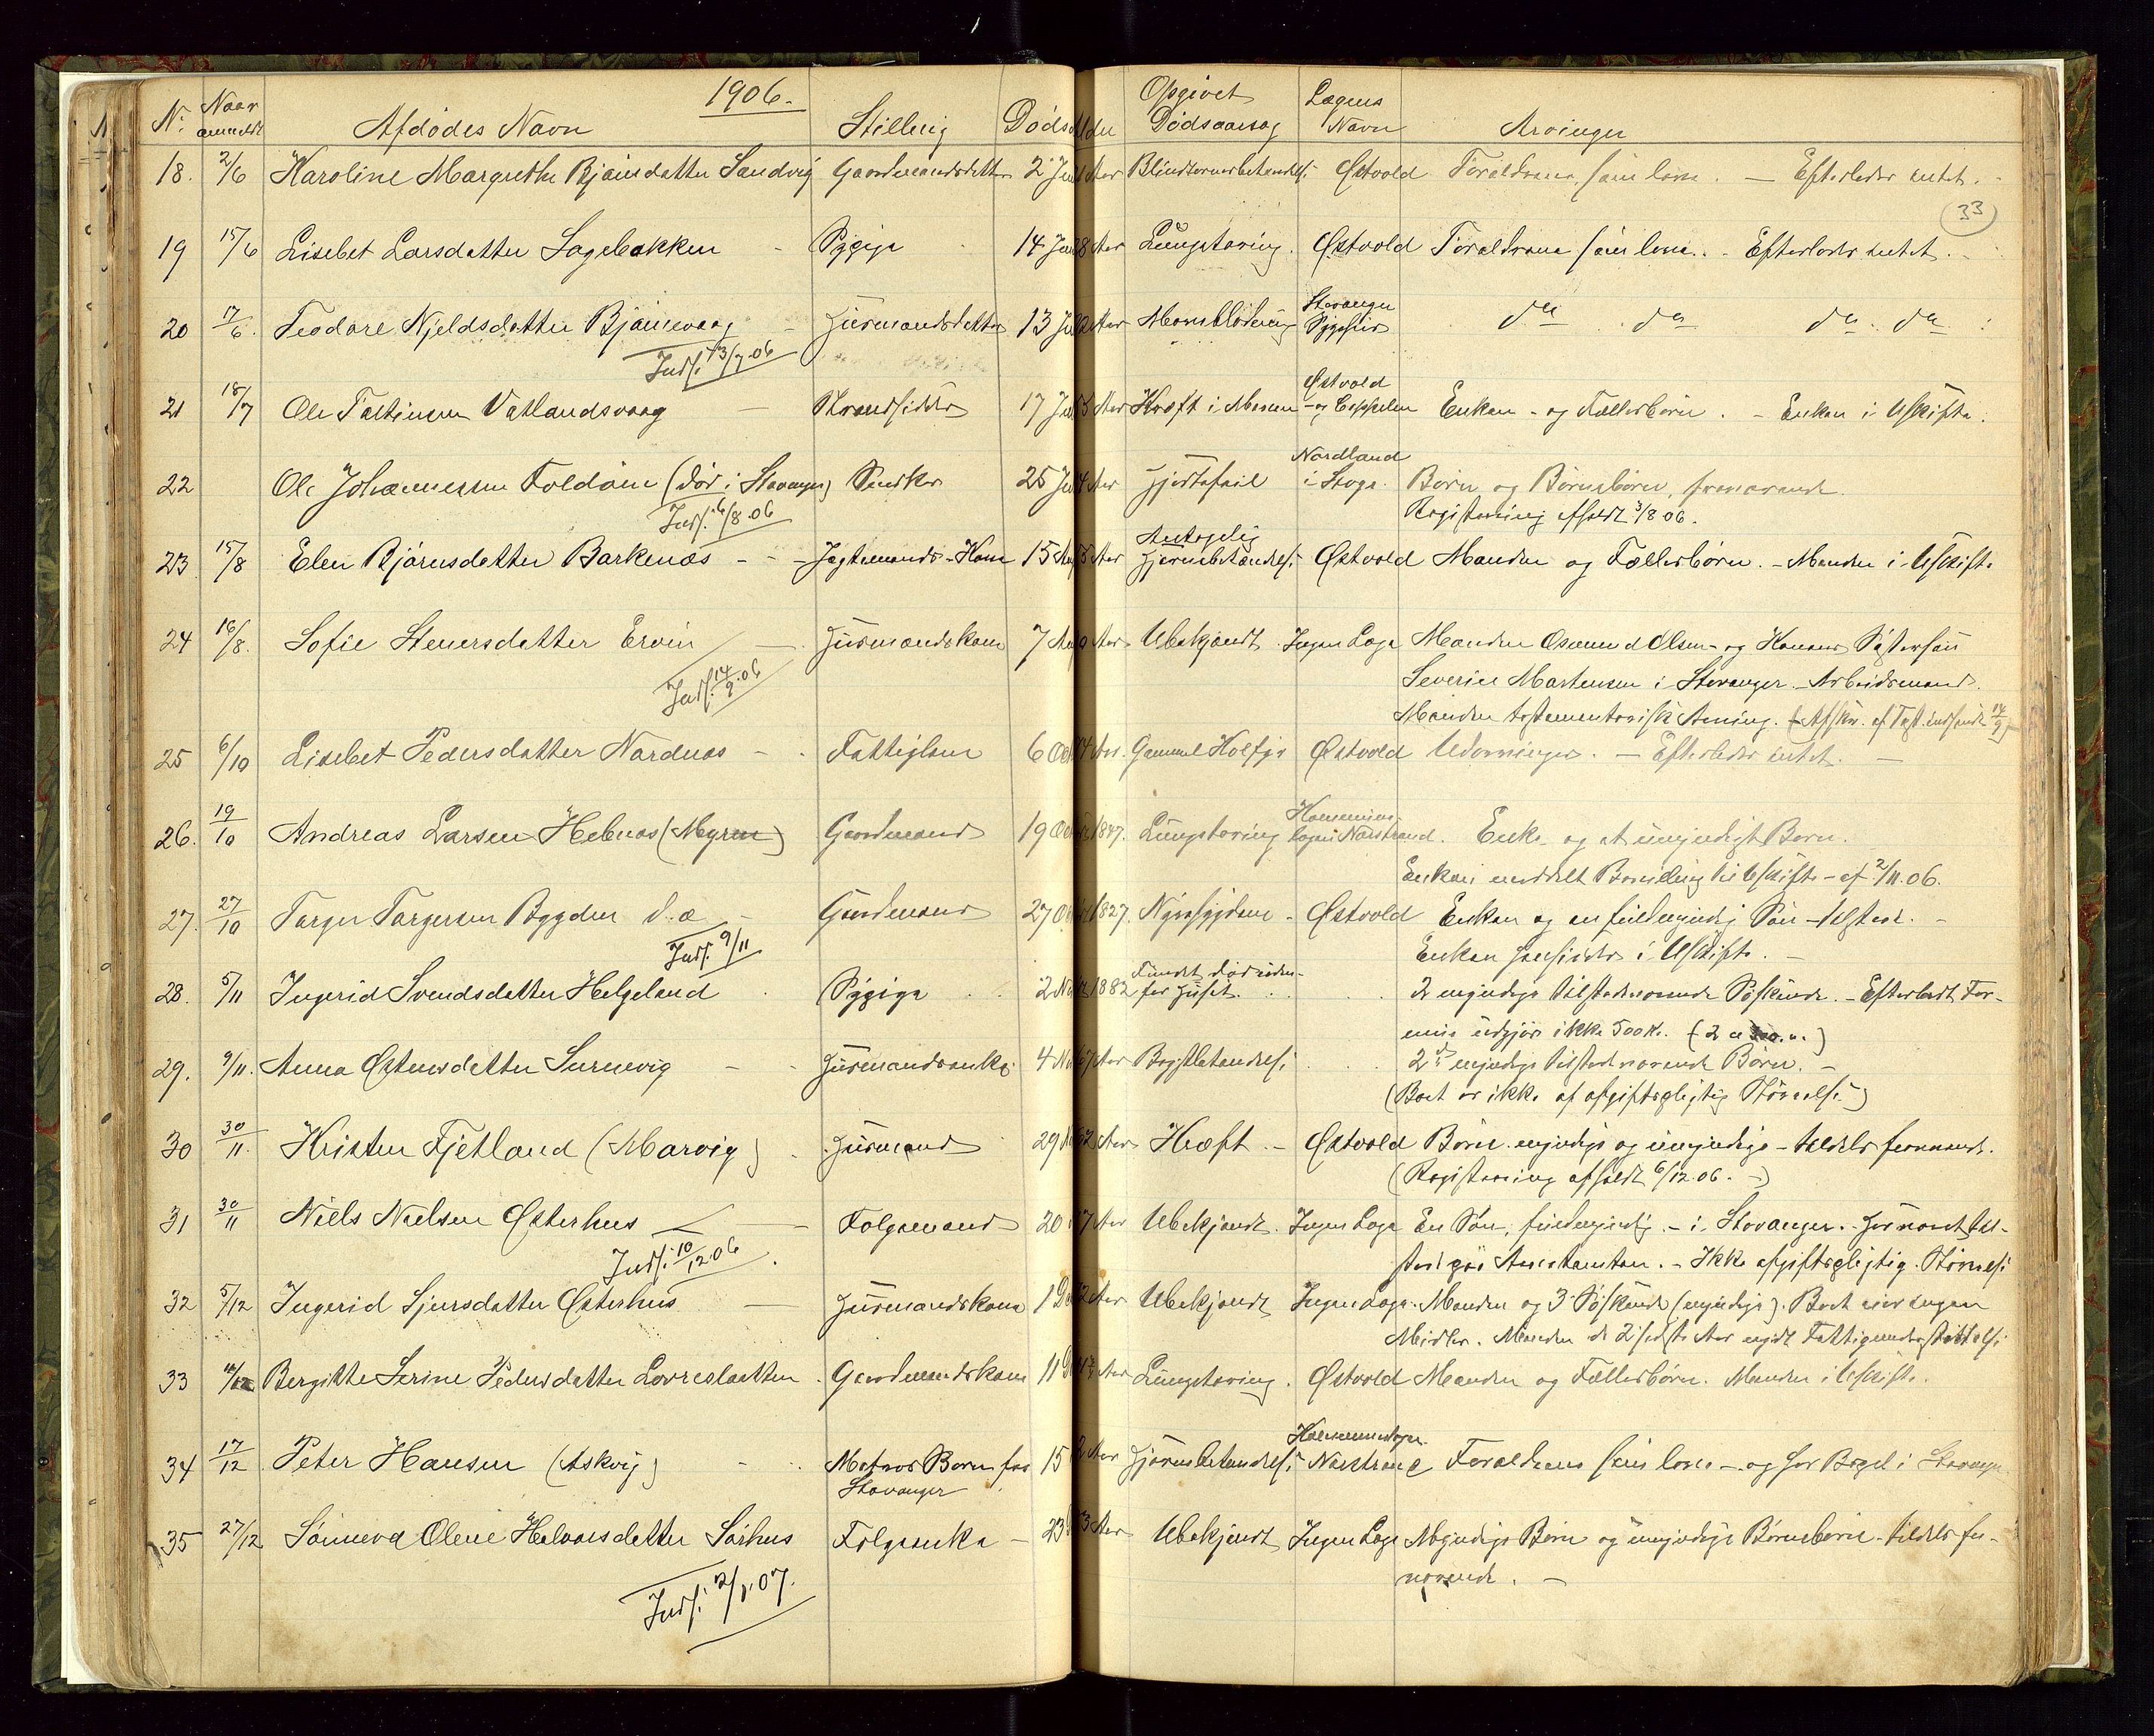 1906.
Nr. Naar anmeldt Afdødes Navn Stilling Døds Alder Opgivet Dødsaarsag Lægens Navn Arvinger
18. 2/6 Karoline Margrethe Bjørnsdatter Sandvig Gaardmandsdatter 2 Jun Aar Blindtarmsbetændelse Østvold Forældrene som leve. — Efterlader intet.
33
19 15/6 Lisebet Larsdatter Lagebakken - Pige 14 Jun Aar Lungetæring. Østvold Forældrene som leve. - Efterlader intet.
20 17/6. Teodore Kjeldsdatter Bjørnevaag - Husmandsdatter 13 Ju Aar Maveblødning Stavanger Sygehus do do do do
Inds. 13/7.06
21 18/7 Ole Tostensen Vatlandsvaag — Strandsidder 17 Ju Aar Kræft i Maven Østvold og Enken - og Fællesbørn. - Enken i Uskifte.
22 Ole Johannessen Foldøen (død i Stavanger) Snedker 25 Ju Aar Hjertefeil Nordland i Børn og Børnebørn, fraværende.
Registrering afholdt 3/8 06.
Inds. 6/8.06
23 15/8 Elen Bjørnsdatter Barkenæs - - Jagtemands-Kone 15 Aug Aar Antagelig Hjernebetændelse Østvold Manden og Fællesbørn. - Manden i Uskifte
24 16/8. Sofie Steuersdatter Ervin — Husmandskone 7 Aug Aar Ubekjendt Ingen Læge Manden Osmund Olsen - og Konens Søstersøn
Severin Martensen i Stavanger - Arbeidsmand.
Manden testamentarisk Arving. (Afskr. af Test. indsendt 14/9)
Inds. 14/9.06
25 6/10 Lisebet Pedersdatter Nordnæs - Fattiglem 6 Oct Aar. Gammel Østvold Udarvinger. — Efterlader intet. —
26. 19/10 Andreas Larsen Hebnæs (Myren) Gaardmand 19 Oct 1847. Lungetæring Nærstrand. Enke og et umyndigt Barn.
Enken meddelt Bevilling til Uskifte - af 2/11.06.
27. 27/10 Torger Torgersen Bygden d.æ - Gaardmand 27 O 1827. Nyresygdom - Østvold Enken og en fuldmyndig Søn - tilstede. -
Enken hensidder i Uskifte. -
Inds. 9/11
28. 5/11 Ingerid Svendsdatter Helgeland Pige 2 No 1882 Fundet død udenfor Huset. 2 myndige tilstedeværende Søskende. - Efterladt For-
mue udgjør ikke 500 Kr.
29. 9/11. Anna Østensdatter Surnevig - Husmandsenke 4 No Aar Brystbetændelse 2de myndige tilstedeværende Børn. -
(Boet er ikke af afgiftspligtig Størrelse)
30 30/11. Kristen Fjetland (Marvig) - Husmand 29 N Aar Kræft. - Østvold Børn, myndige og umyndige - tildels fraværende.
(Registrering afholdt 6/12.06. -)
31 30/11 Niels Nielsen Østerhus — Folgemand 20 Aar Ubekjendt. Ingen Læge En Søn, fuldmyndig - i Stavanger.
Ikke afgiftspligtig Størrelse
Inds. 10/12.06
32 5/12 Ingerid Sjursdatter Østerhus — Husmandskone 1 De Aar Ubekjendt Ingen Læge. Manden og 3 Søskende (myndige). Boet eier ingen
Midler. Manden de 2 sidste Aar nydt Fattigunderstøttelse
33 Bergitte Serine Pedersdatter Lovraslaatten. Gaardmandskone 11 D Aar Lungetæring. Østvold Manden og Fællesbørn. Manden i Uskifte.
34 17/12 Peter Hansen (Askvig) - Matros Barn fra Stavanger 15 Aar Hjernebetændelse Nærstrand Forældrene som leve - og har Bopæl i Stavanger.
35 27/12 Sønneva Olene Halvorsdatter Sørhus Folgeenke - 23 Aar Ubekjendt Ingen Læge Myndige Børn og umyndige Børnebørn. tildels fra-
værende. -
Inds. 2/1.07.